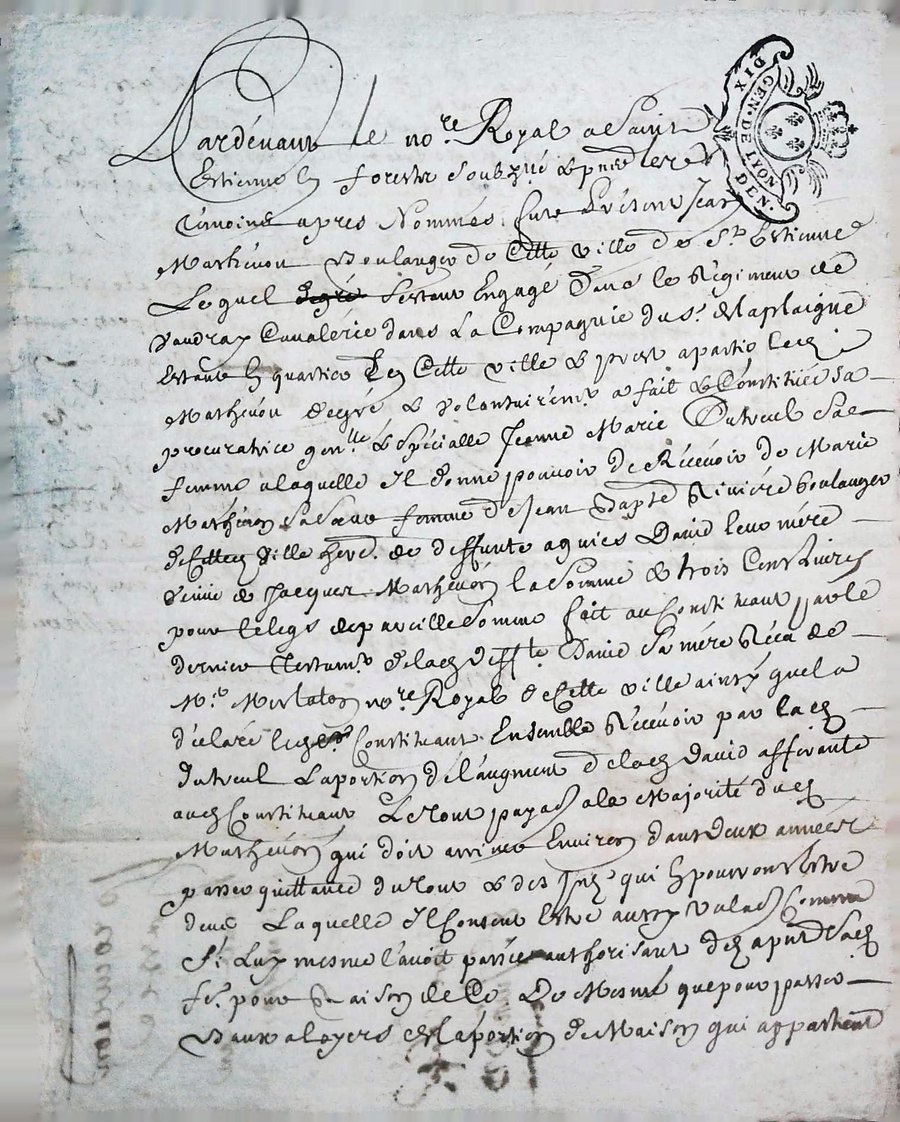 GEN. DE LYON
DIX DEN.
Pardevant le no.re Royal a Saint
Estienne en forestz soubz.né & pnts les
temoins apres Nommés, fut présent Jean
Mathevon Boulanger de Cette ville de St. Estienne
Lequel degré s'estant Engagé Dans le Régiment de
Vaudray Cavalérie dans La Compagnie du Sr. delaplaigne
Estant En quartier En Cette ville & prest a partir lecq
Mathevon degré & volontairemt. a fait & Constitiée sa
procuratrice gen.lle & spécialle Jeanne Marie Duteul sa
femme a laquelle Il donne pouvoir de Récevoir de Marie
Mathevon sa soeur femme de Jean Bapte Riviére boulanger
de Cetted. Ville hérd. de deffunte agniés David leur mére
Veuve de Jacques Mathevon la somme de trois Cens Livres
pour le legs de pareille somme fait au Constituant par le
dernier Testamt. de lad. deff.te David sa mére Réçu de
Me. Merlaton no.re Royal de Cette ville ainsy quel a
déclaré lecq Constituant Ensemble Récevoir par lacq
Duteul La portion de l'augment de lacq David afférante
aucq Constituant Le tout payab. a la Majorité ducq
Mathevon qui doit arriver Environ dans deux années
passer quittance du tout & des Intz. qui En pourront Estre
deus Laquelle Il Consent Estre aussy valad. Comme
Si Luy mesme l'avoit passée authorisant dez apnt sacq
fe. pour Raison de Ce, De Mesme que pour passer
Baux a loyers de la portion de Maison qui appartient